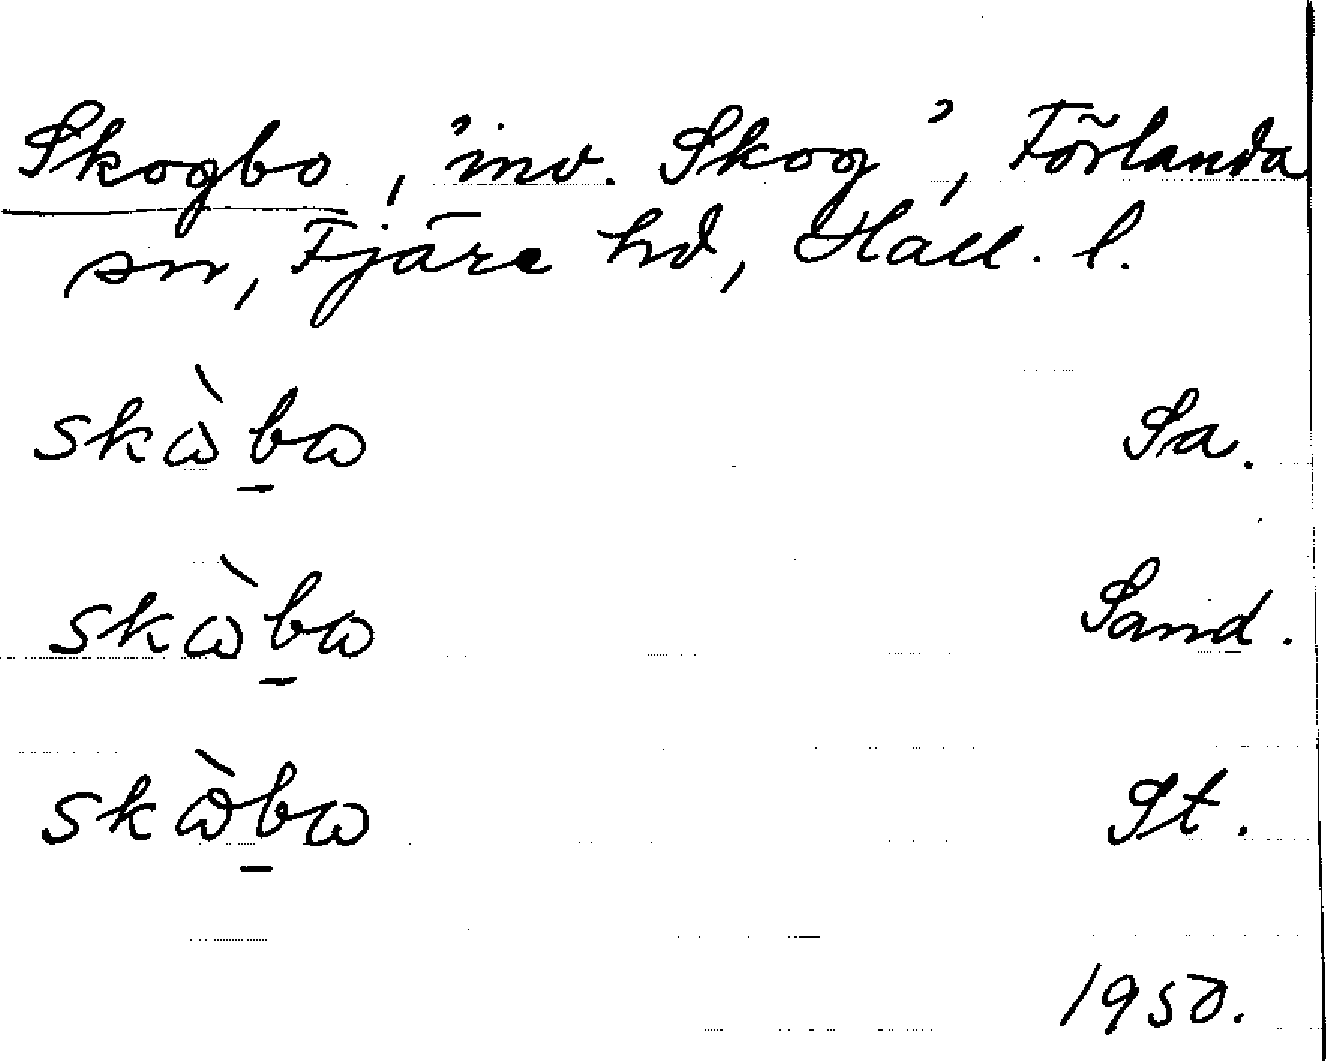 Skogbo, "inv. Skog", Förlanda
sn, Fjäre hd, Hall. l.
skὼbω Sa.
skὼbω Sand.
skὼbω St.
1950.